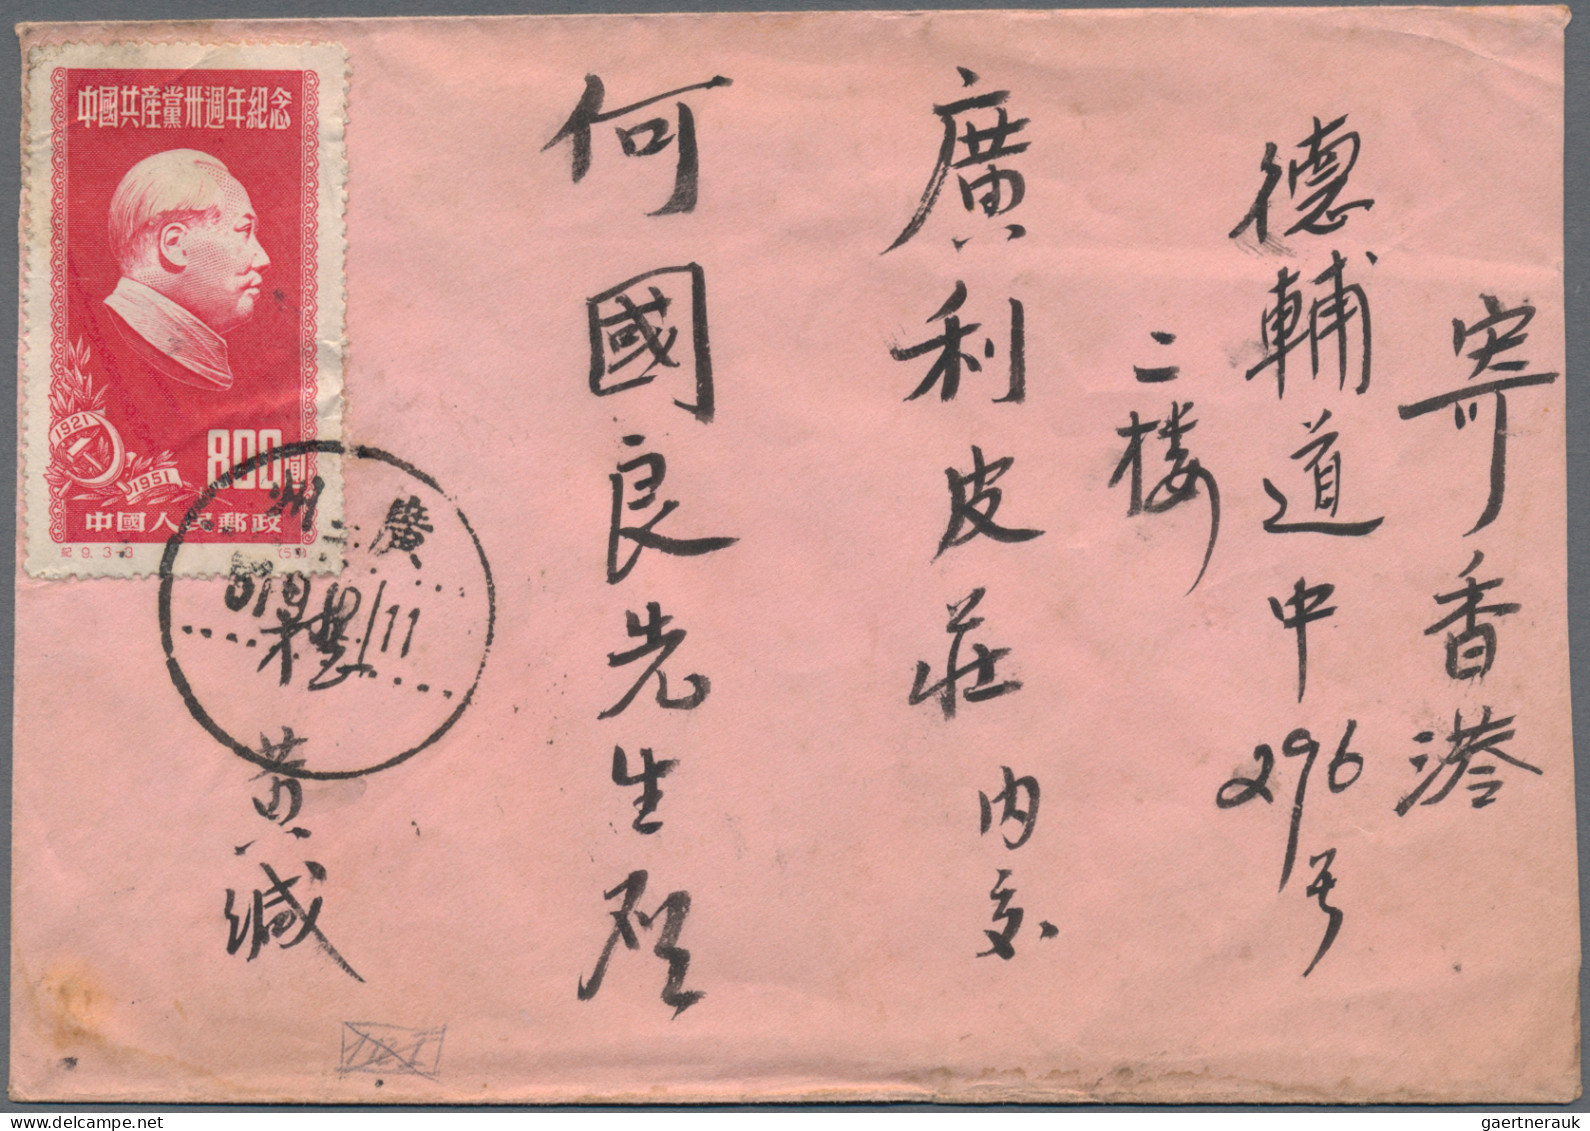 寄香港
德輔道中296号
二楼
廣利皮莊内交
何國良先生啟
黄緘
中國共產黨卅週年紀念
1921
1951
800圓
中國人民郵政
紀9. 3-3
廣州
11
gaertnerauk